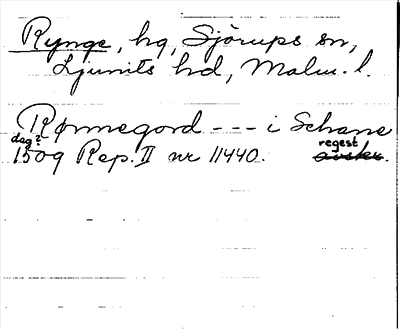 Rynge, hg, Sjörups sn,
Ljunits hd, Malm. l.
Rønnegord --- i Schane
dag?
1509 Rep. II nr 11440.
regest
avskr.